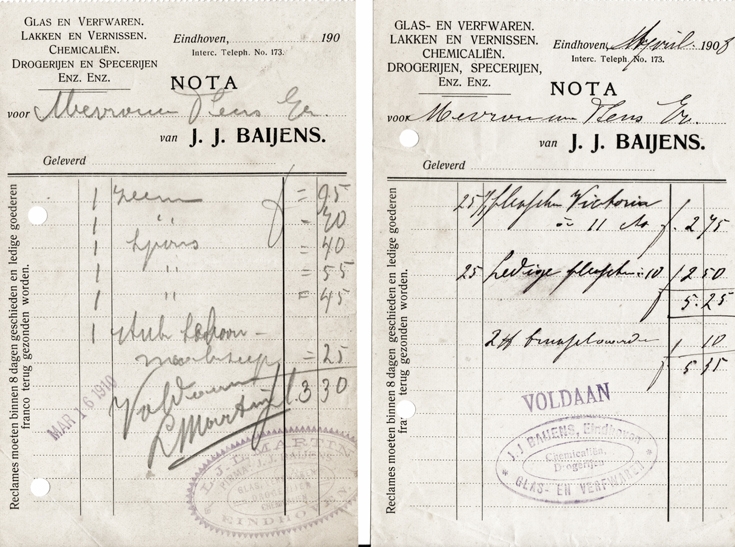 GLAS EN VERFWAREN.
LAKKEN EN VERNISSEN.
CHEMICALIËN.
DROGERIJEN EN SPECERIJEN
ENZ. ENZ.
Eindhoven, 190
Interc. Teleph. No. 173.
NOTA
voor Mevrouw
van J. J. BAIJENS.
Geleverd
Reclames moeten binnen 8 dagen geschieden en ledige goederen
franco terug gezonden worden.
1 zeem = 95
1 " = 70
1 spons = 40
1 " = 55
1 " = 45
1 stuk
= 25
Voldaan f. 3 30
L Martin
MAR 16 1910
L. J. L. MARTIN
EINDHOVEN
GLAS- EN VERFWAREN.
LAKKEN EN VERNISSEN.
CHEMICALIËN.
DROGERIJEN, SPECERIJEN,
ENZ. ENZ.
Eindhoven, April 1908
Interc. Teleph. No. 173.
NOTA
voor Mevrouw
van J. J. BAIJENS.
Geleverd
Reclames moeten binnen 8 dagen geschieden en ledige goederen
terug gezonden worden.
25 flesschen Victoria
à 11 f. 2 75
25 Ledige flesschen 10 2 50
5.25
2
10
f 5 35
VOLDAAN
J. J. BAIJENS, Eindhoven
Chemicaliën,
Drogerijen
GLAS- EN VERFWAREN